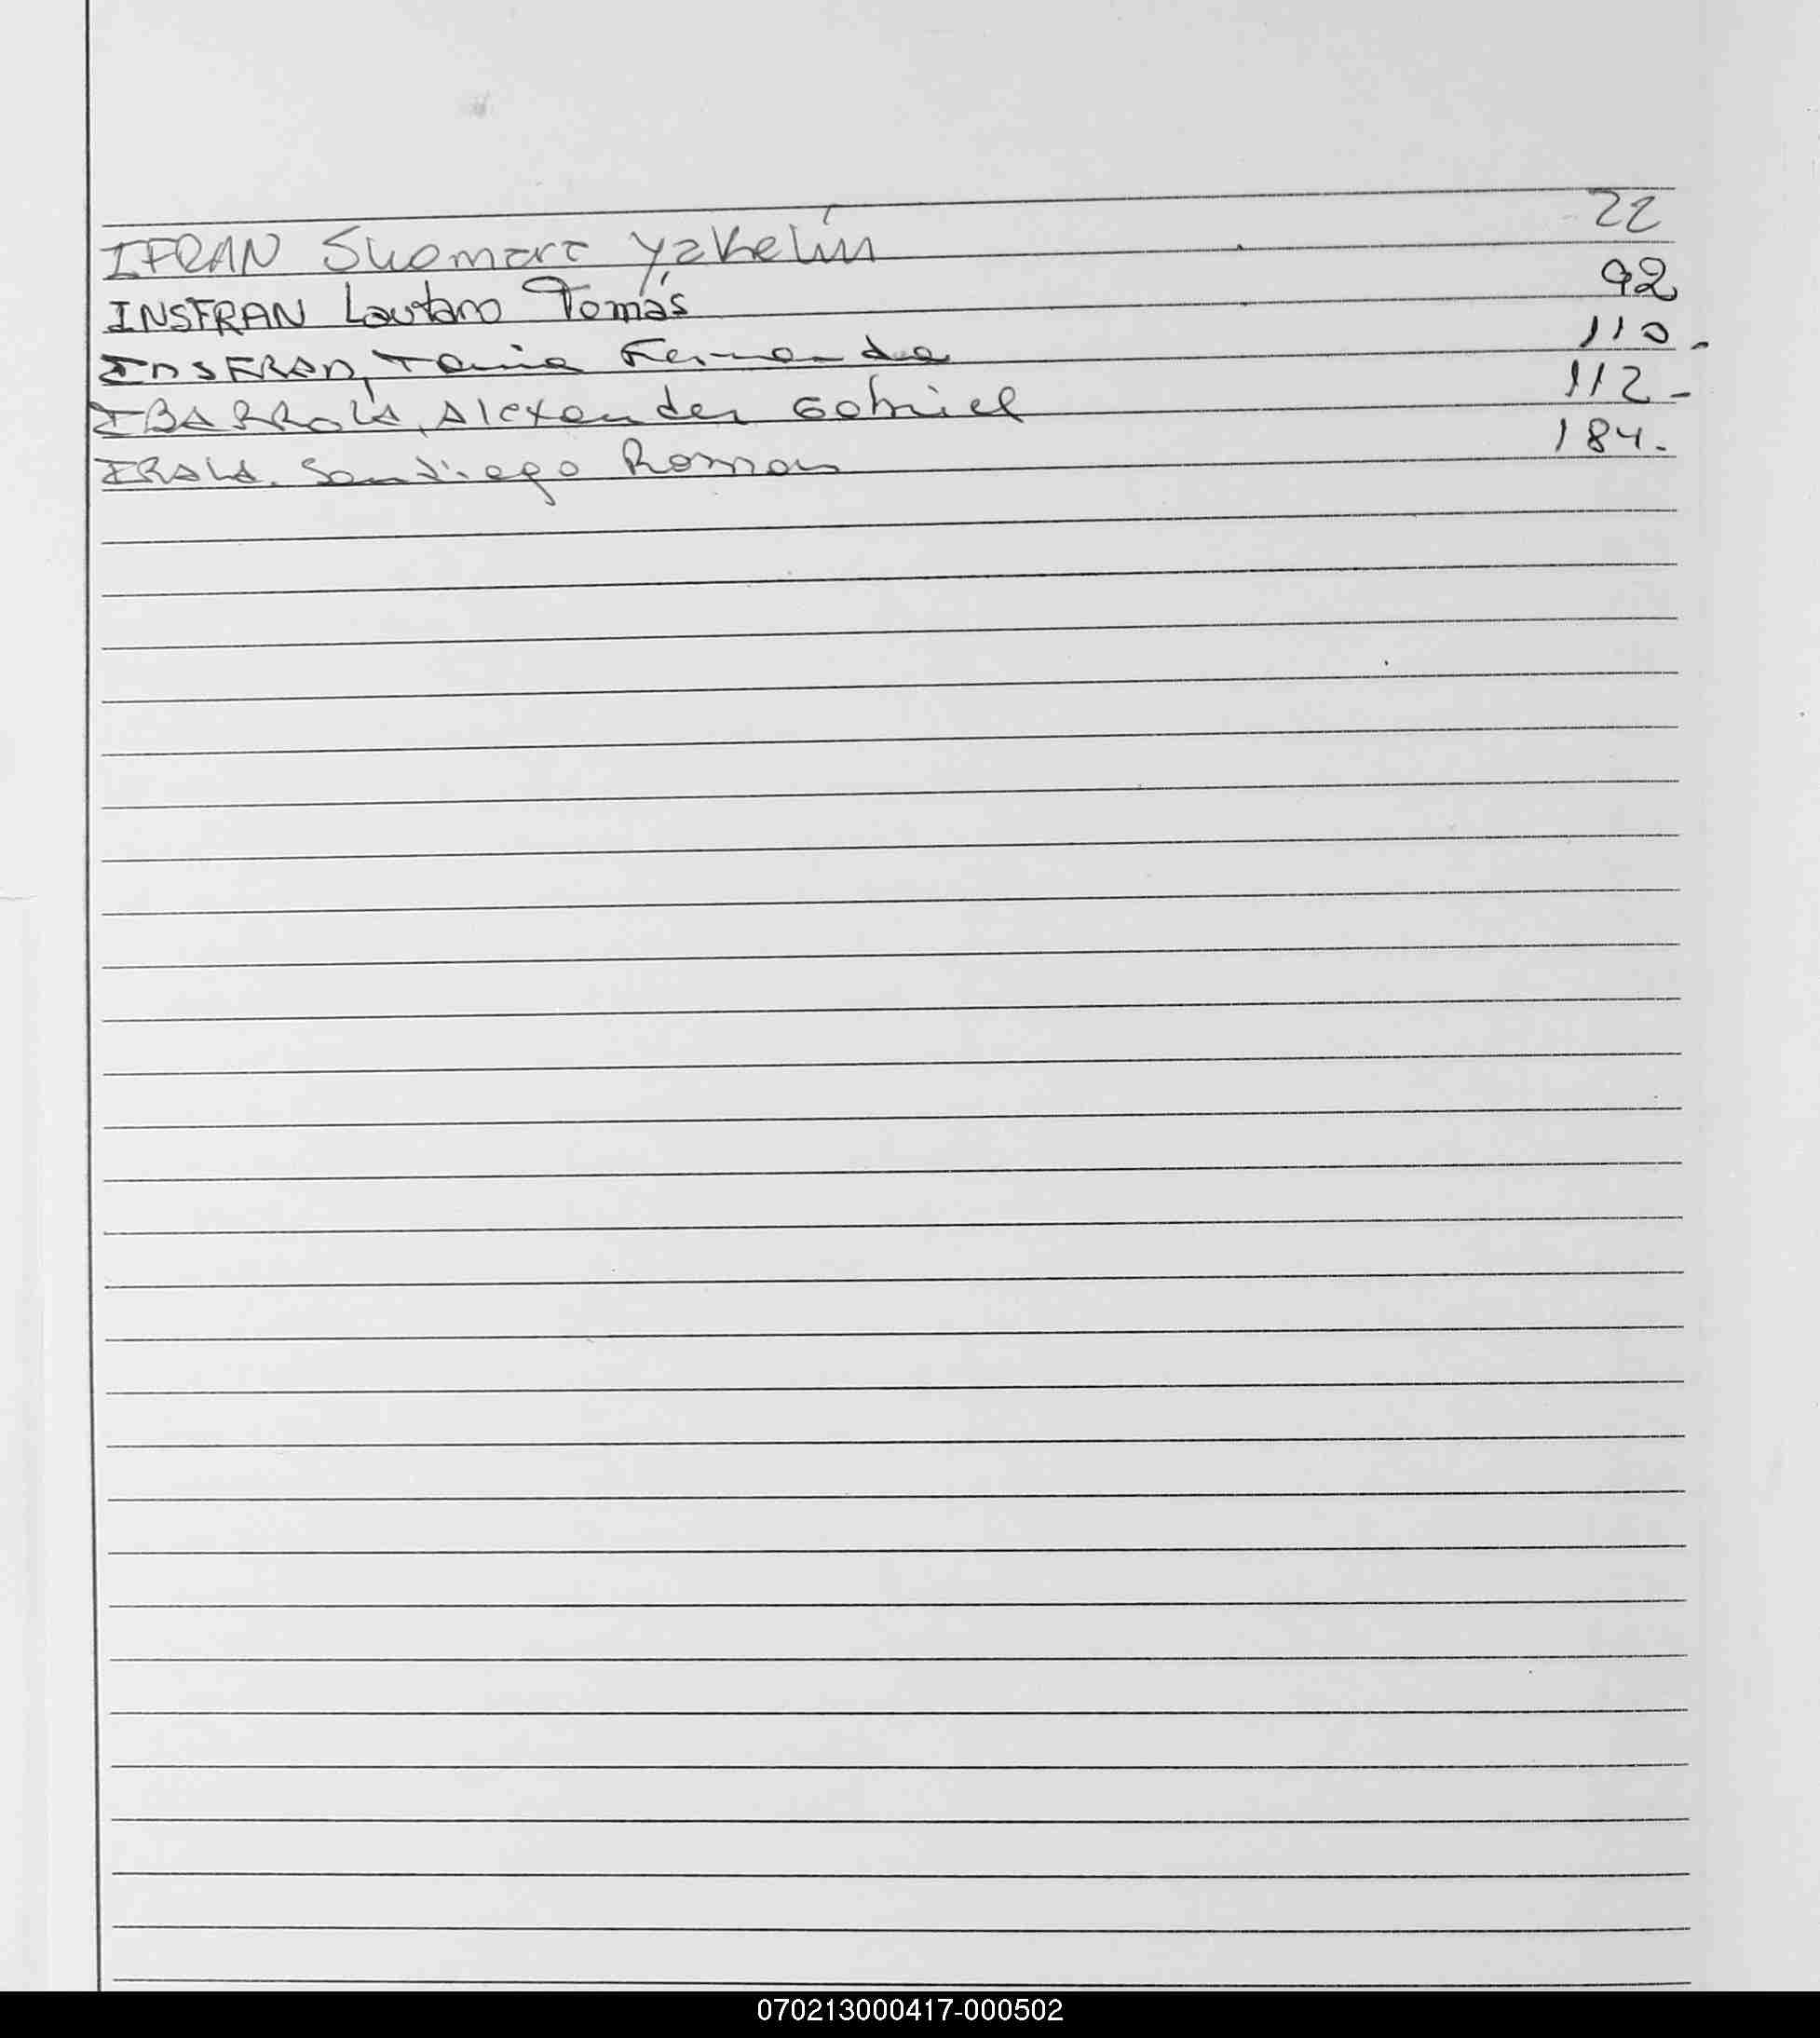 IFRAN Suomara Yakelín 22
INSFRAN Lautaro Tomás 92
INSFRAN, Tania Fernanda 110.
IBARROLA, Alexander Gabriel 112-
IRALA. Santiago Roman 184.
070213000417-000502